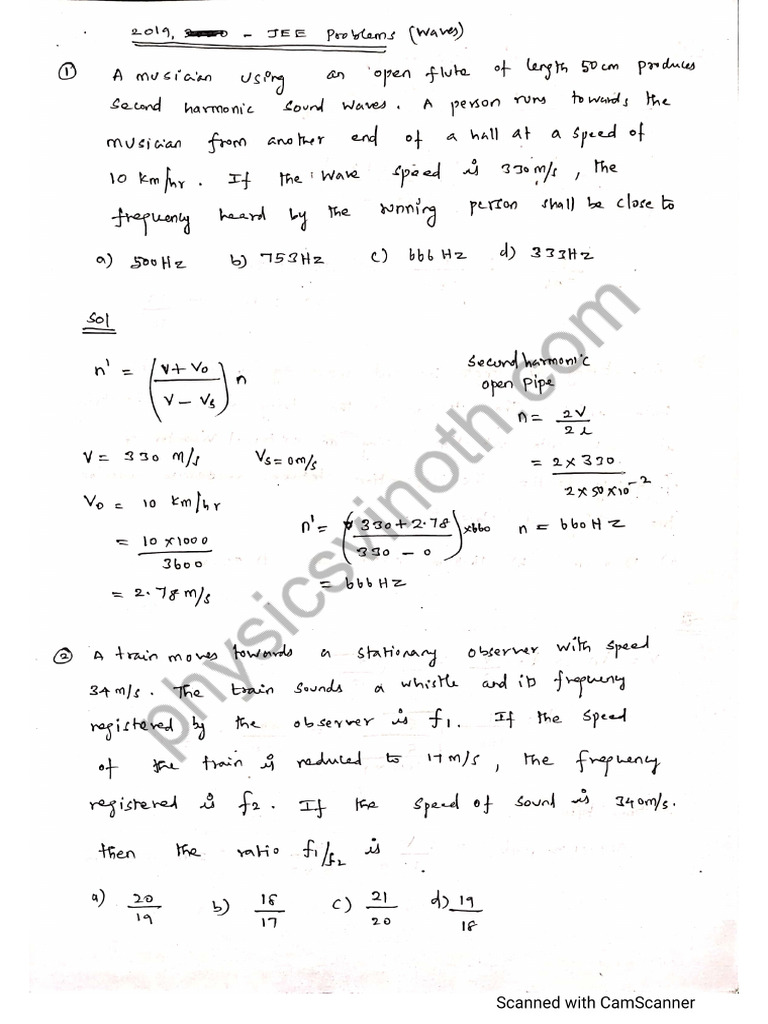 2019, - JEE Problems (Waves)
① A musician using an open flute of length 50 cm produces
second harmonic sound waves. A person runs towards the
musician from another end of a hall at a speed of
10 km/hr. If the wave speed is 330 m/s, the
frequency heard by the running person shall be close to
a) 500 Hz b) 753 Hz c) 666 Hz d) 333 Hz
Sol
n' = ((V + Vo)/(V - Vs)) n
second harmonic
open pipe
n = 2V/2l
V = 330 m/s Vs = 0 m/s
= 2 x 330 / 2 x 50 x 10^-2
Vo = 10 km/hr
n' = ((330 + 2.78)/(330 - 0)) x 660
n = 660 Hz
= 10 x 1000 / 3600
= 666 Hz
= 2.78 m/s
② A train moves towards a stationary observer with speed
34 m/s. The train sounds a whistle and its frequency
registered by the observer is f1. If the speed
of the train is reduced to 17 m/s, the frequency
registered is f2. If the speed of sound is 340 m/s.
then the ratio f1/f2 is
a) 20/19 b) 18/17 c) 21/20 d) 19/18
physicsvinoth.com
Scanned with CamScanner